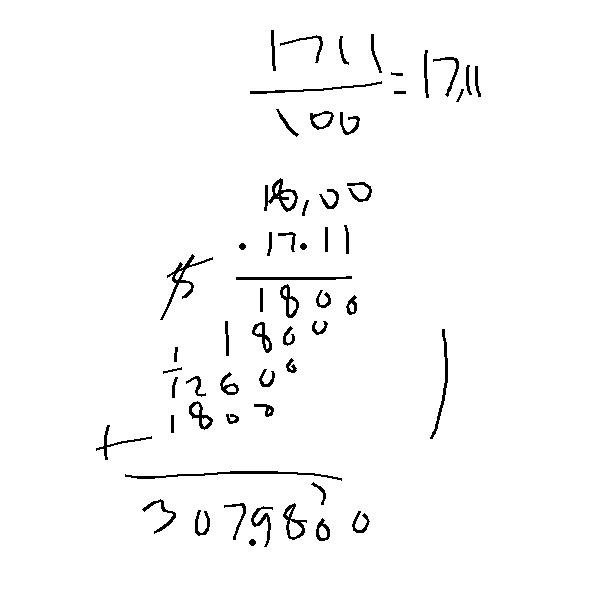 1711
100
= 17,11
18,00
. 17.11
1800
1800
1
12600
1800
+
307.9800